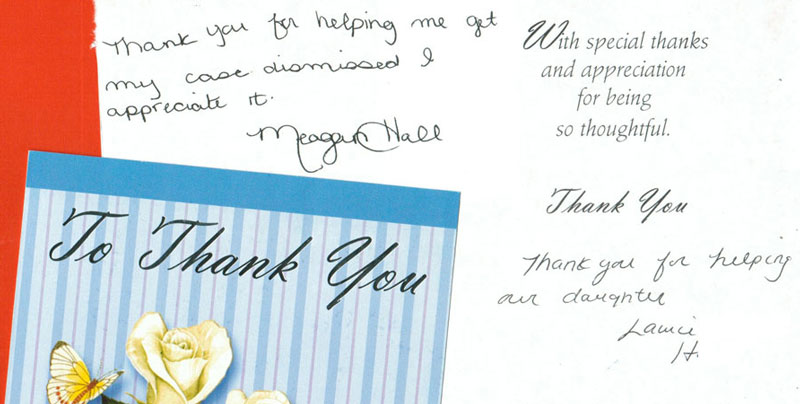 Thank you for helping me get
my case dismissed I
appreciate it.
Meagan Hall
To Thank You
With special thanks
and appreciation
for being
so thoughtful.
Thank You
Thank you for helping
our daughter
H.